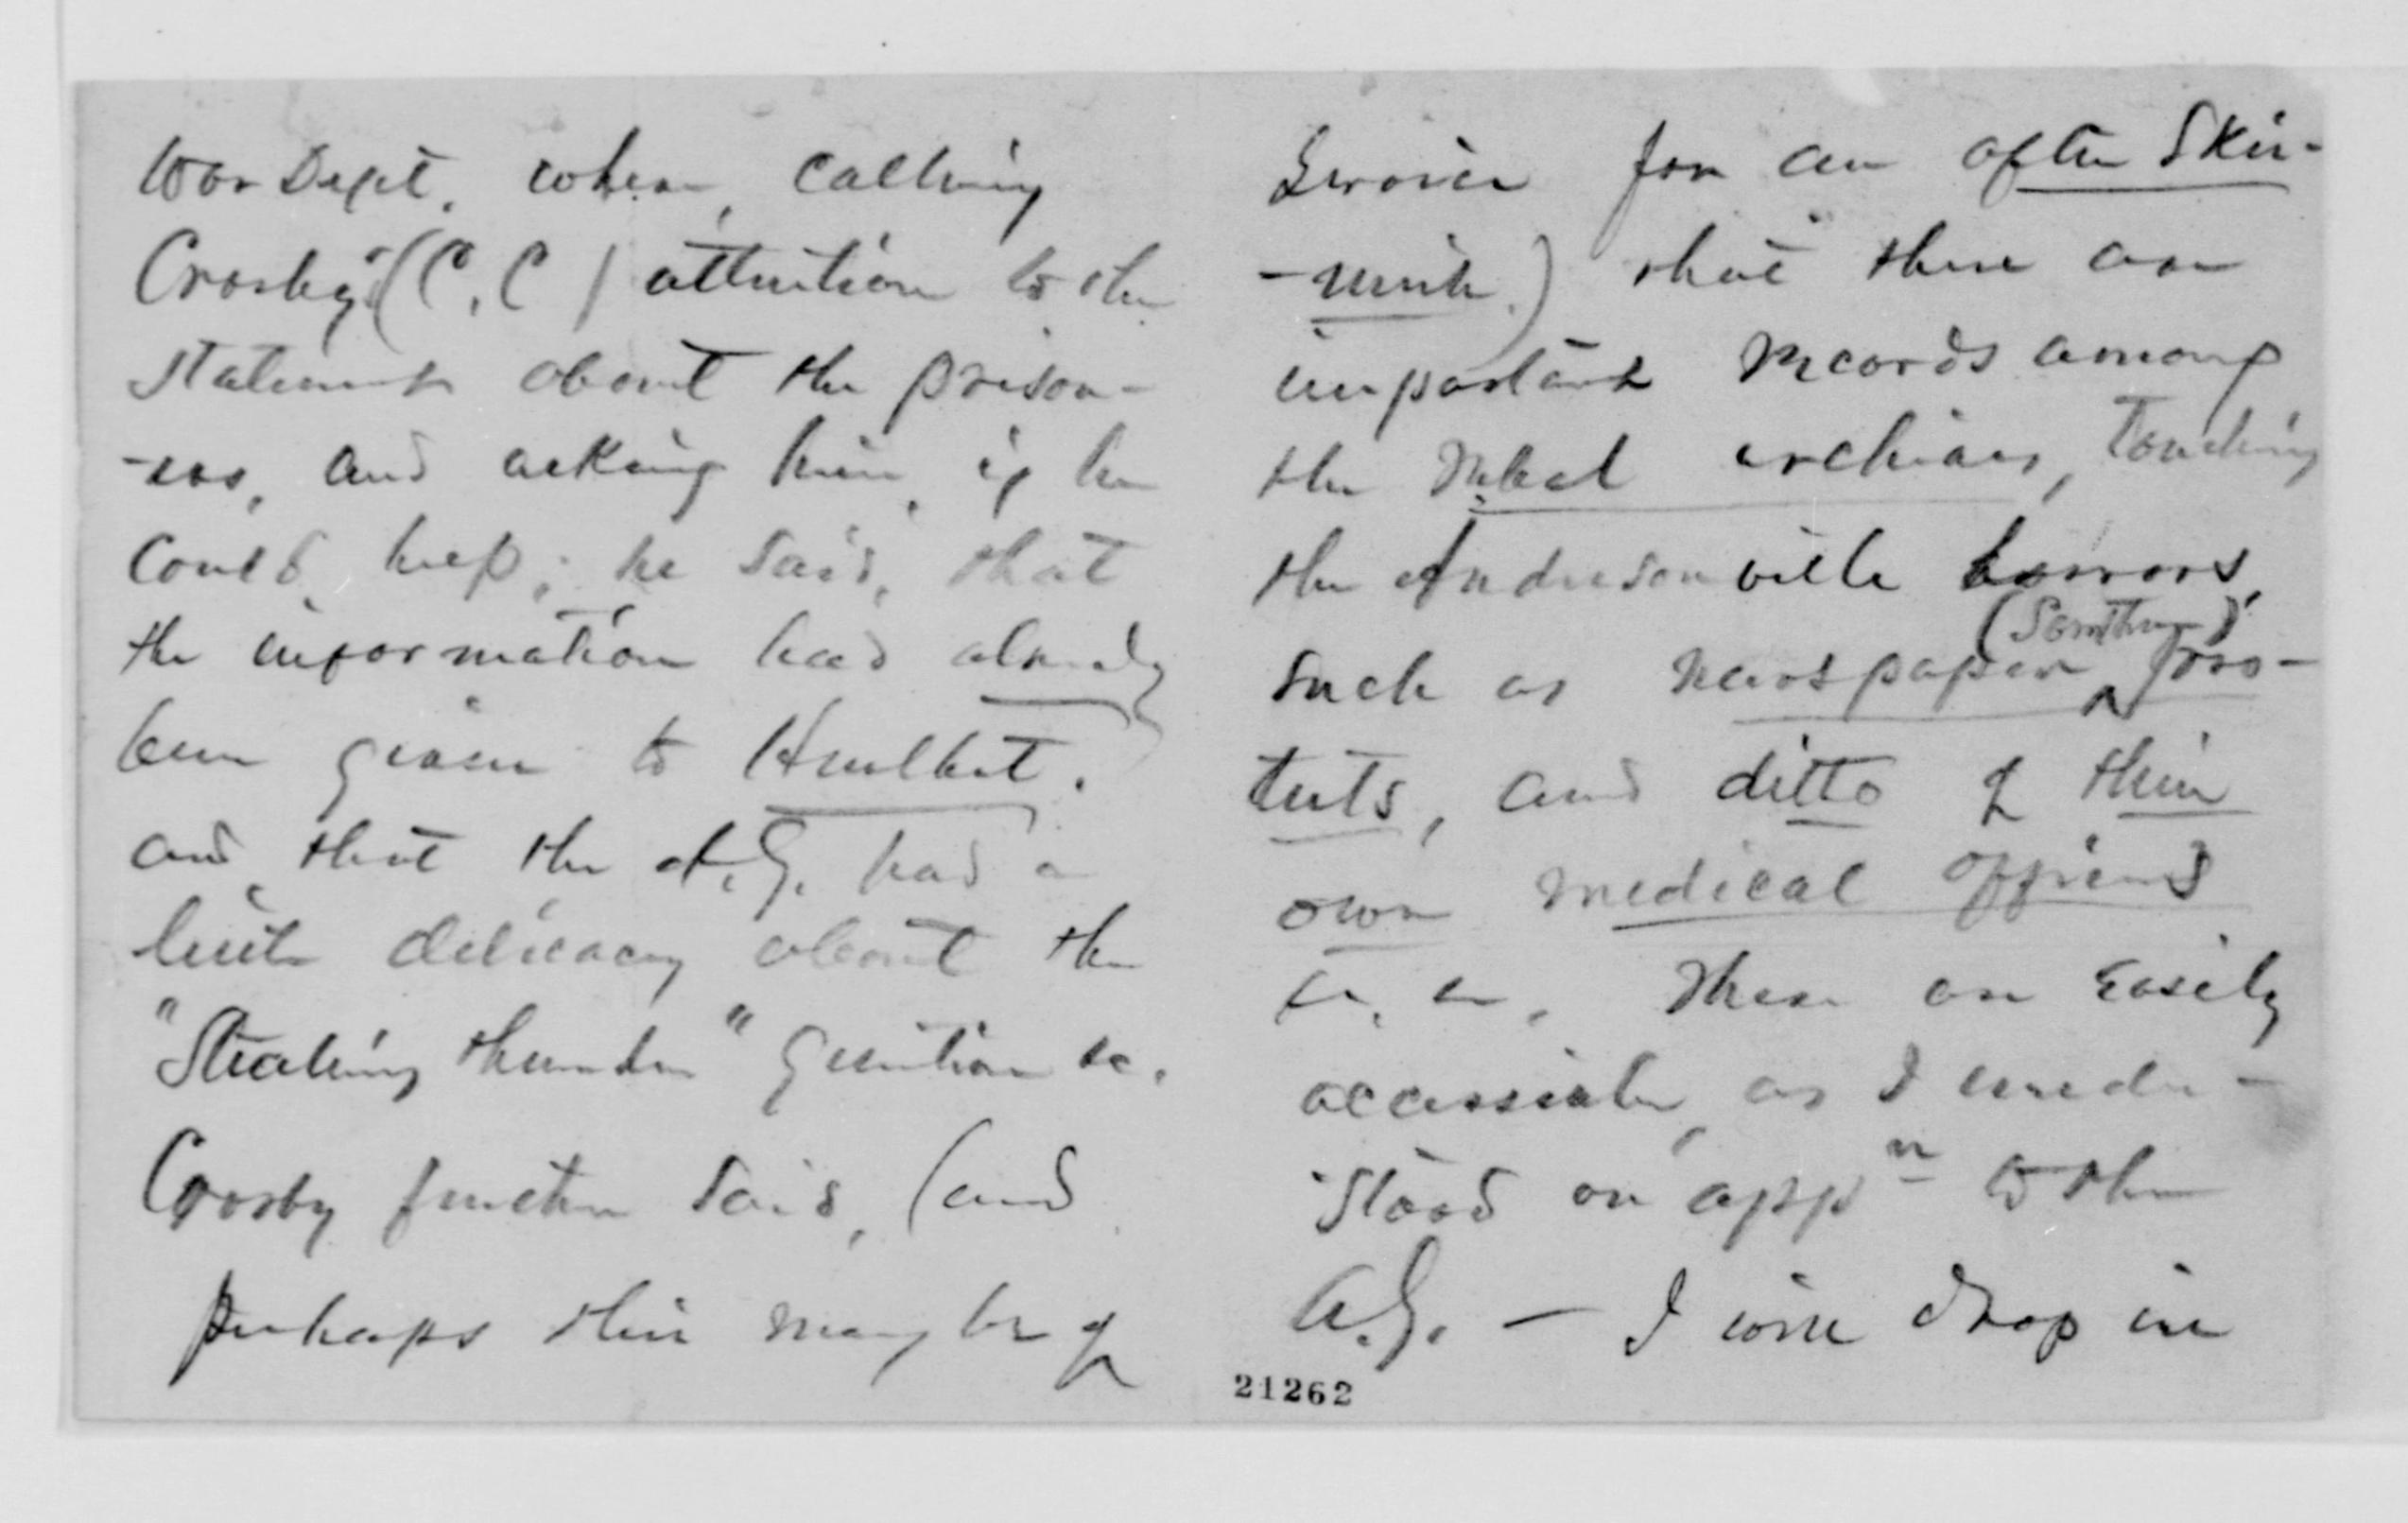 War Dept. where, calling
Crosby's (C. C) attention to the
statements about the prison-
-ers, and asking him, if he
could help; he said, that
the information had already
been given to Hurlbut.
and, that the A.G. had a
little delicacy about the
"Stealing thunder" question &c.
Crosby further said, (and
perhaps this may be of
Service for an after Skir-
-mish.) that there are
important records among
the Rebel archives, touching
the Andersonville horrors,
(Southern)
such as newspaper pro-
tests, and ditto of their
own medical officers
&c. &c. These are easily
accessible, as I under-
stood on appn to the
A.G. — I will drop in
21262